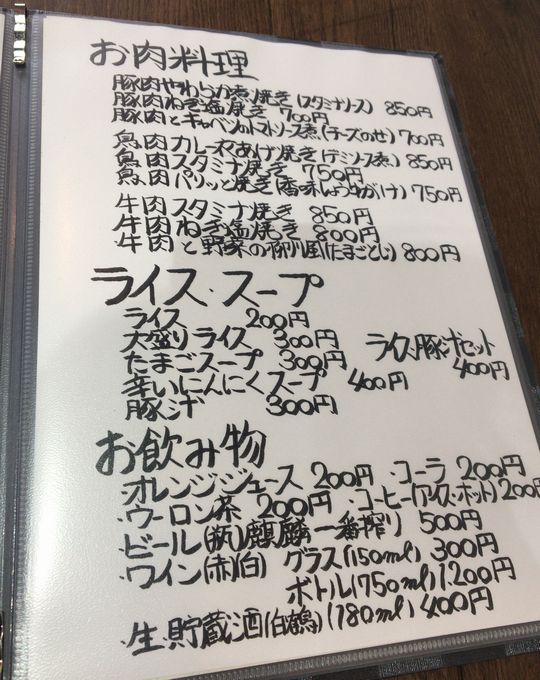 お肉料理
豚肉やわらか煮焼き(スタミナソース) 850円
豚肉ねぎ塩焼き 700円
豚肉とキャベツのトマトソース煮(チーズのせ) 700円
鳥肉カレー衣あげ焼き(デミソース煮) 850円
鳥肉スタミナ焼き 750円
鳥肉パリッと焼き(香味しょうゆがけ) 750円
牛肉スタミナ焼き 850円
牛肉ねぎ塩焼き 800円
牛肉と野菜の柳川風(たまごとじ) 800円
ライス・スープ
ライス 200円
大盛りライス 300円
たまごスープ 300円
ライス豚汁セット 400円
辛いにんにくスープ 400円
豚汁 300円
お飲み物
・オレンジジュース 200円 コーラ 200円
・ウーロン茶 200円 コーヒー(アイス・ホット) 200円
・ビール(瓶)麒麟一番搾り 500円
・ワイン(赤)(白) グラス(150ml) 300円
ボトル(750ml) 1,200円
・生貯蔵酒(白鶴)(180ml) 400円